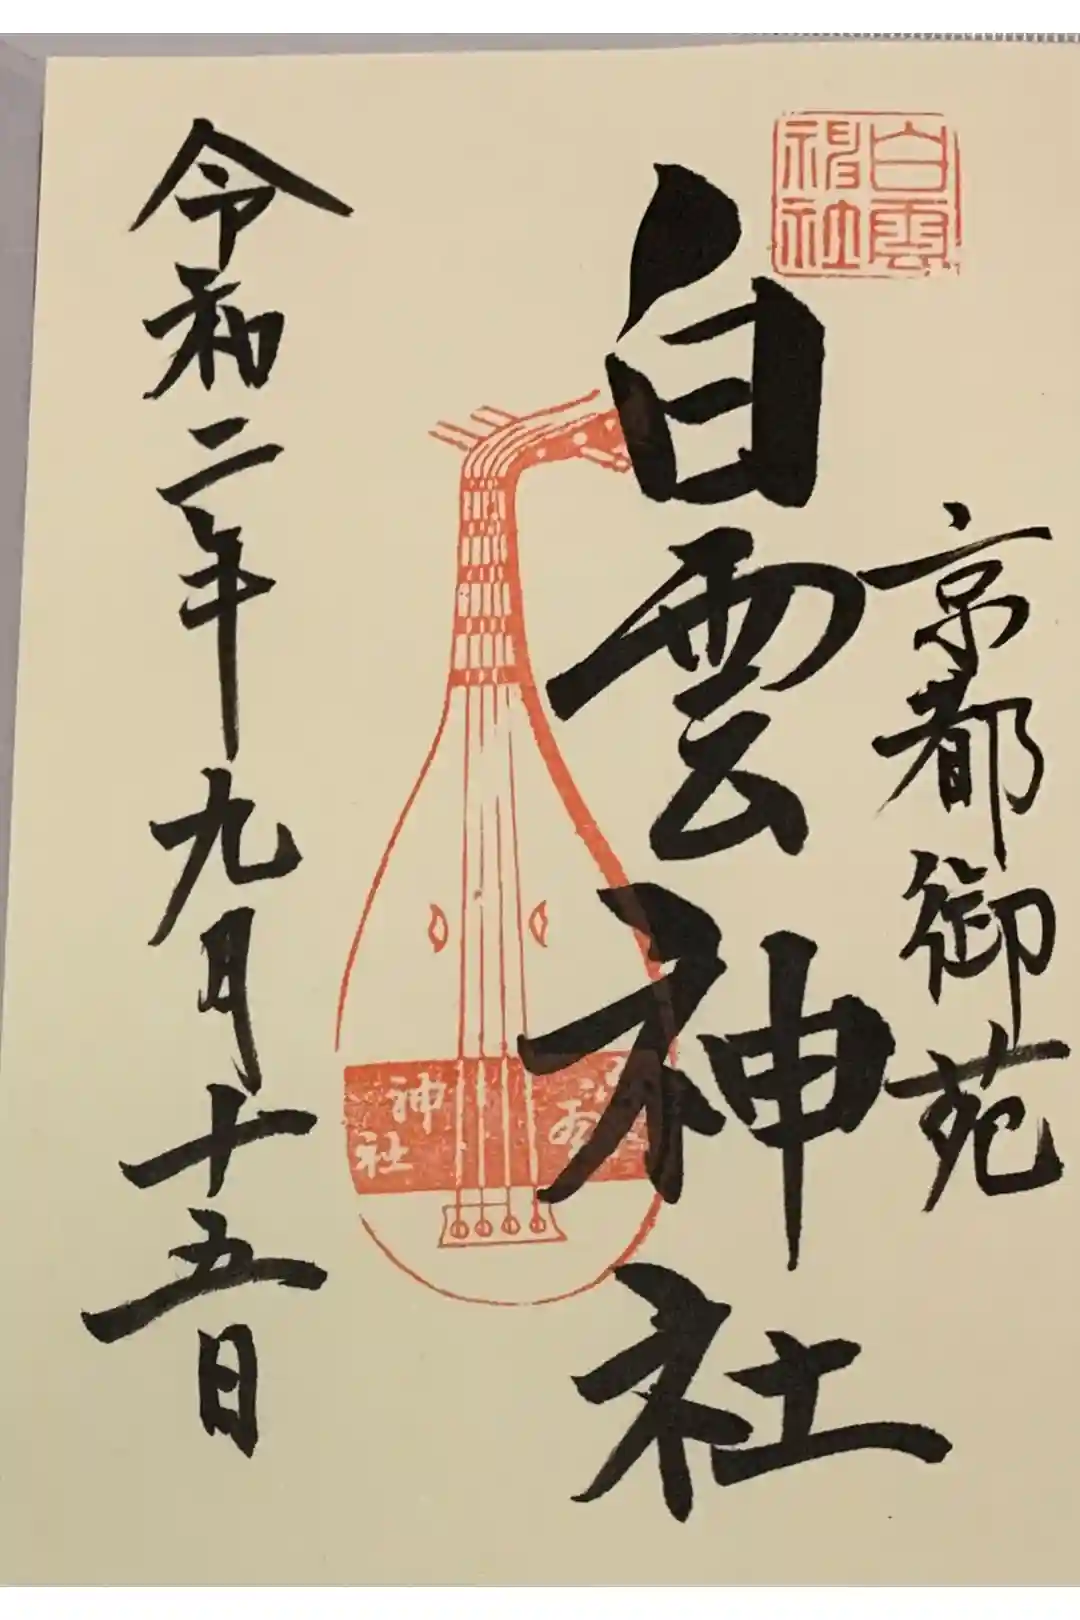 白雲
神社
京都御苑
白雲神社
神社
令和二年九月十五日